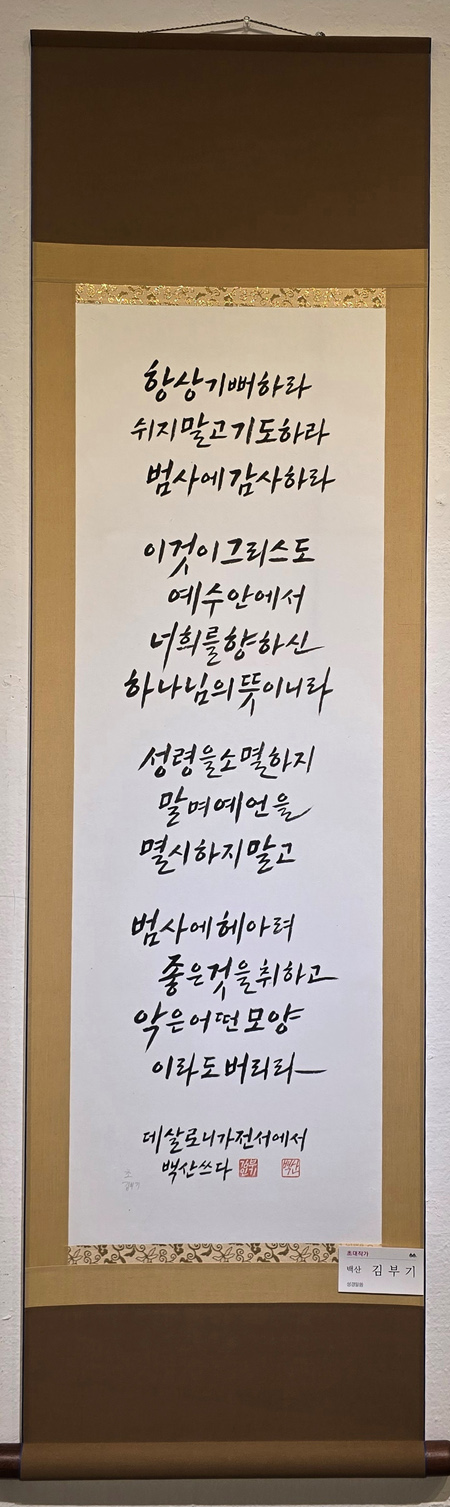 항상기뻐하라
쉬지말고기도하라
범사에감사하라
이것이그리스도
예수안에서
너희를향하신
하나님의뜻이니라
성령을소멸하지
말며예언을
멸시하지말고
범사에헤아려
좋은것을취하고
악은어떤모양
이라도버리라
데살로니가전서에서
백산쓰다
초대작가
백산 김부기
성경말씀